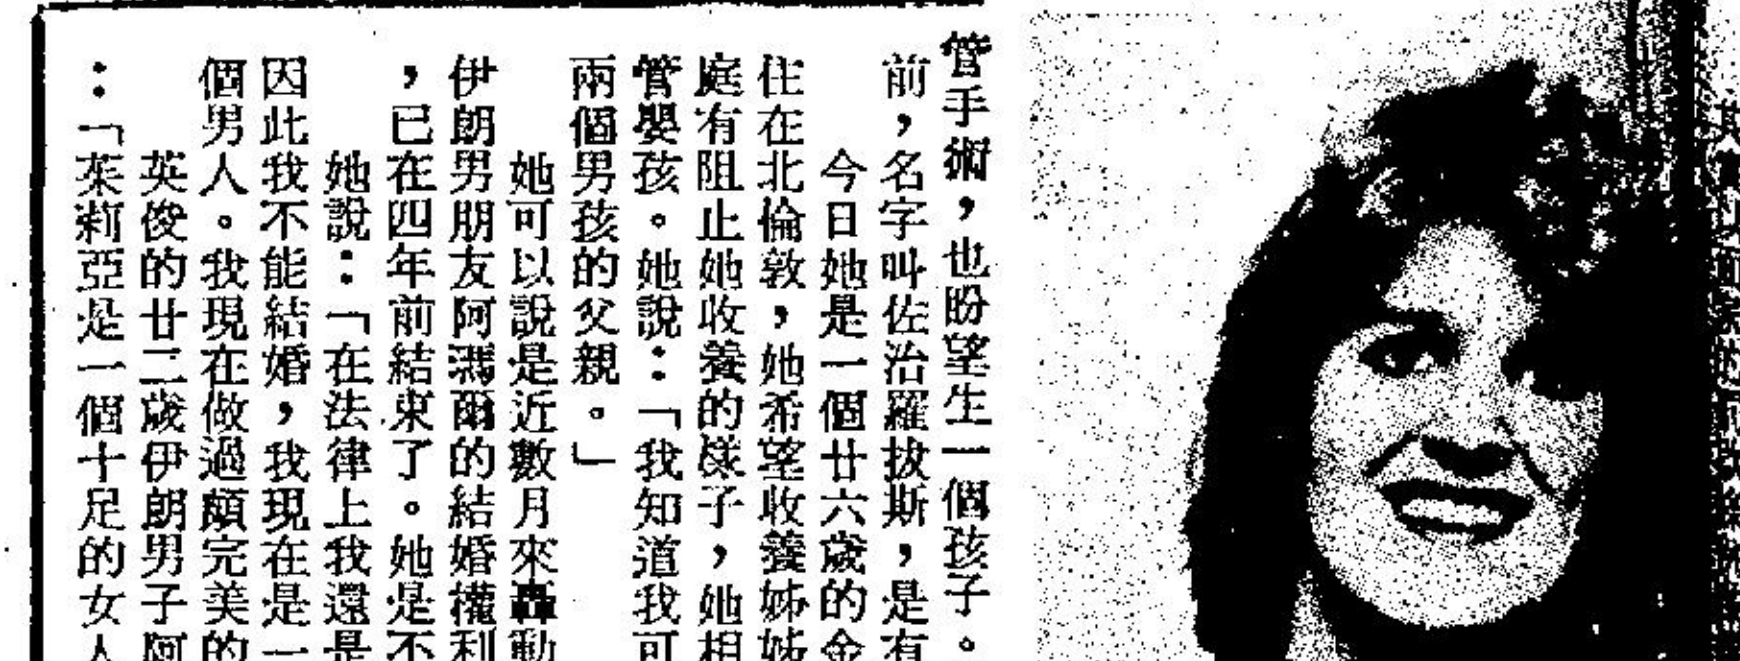 管手術，也盼望生一個孩子。
前，名字叫佐治羅拔斯，是有
今日她是一個廿六歲的金
住在北倫敦，她希望收養姊姊
庭有阻止她收養的樣子，她相
管嬰孩。她說：「我知道我可
兩個男孩的父親。」
她可以說是近數月來轟動
伊朗男朋友阿瑪爾的結婚權利
，已在四年前結束了。她是不
她說：「在法律上我還是
因此我不能結婚，我現在是一
個男人。我現在做過頗完美的
英俊的廿二歲伊朗男子阿
：「茱莉亞是一個十足的女人